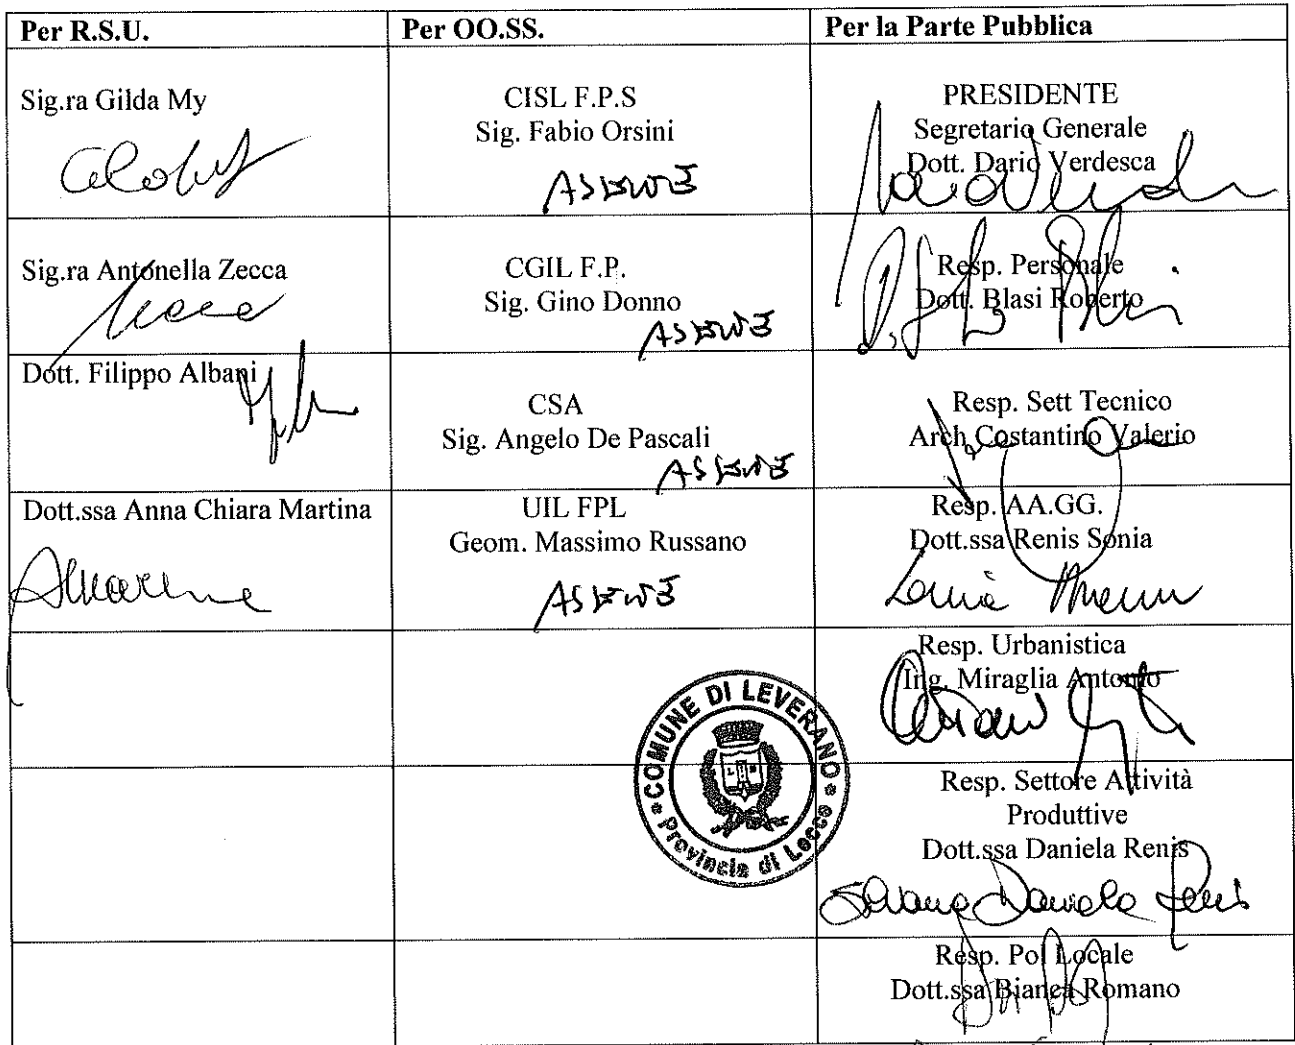 Per R.S.U. Per OO.SS. Per la Parte Pubblica
Sig.ra Gilda My
CISL F.P.S
Sig. Fabio Orsini
ASSENTE
PRESIDENTE
Segretario Generale
Dott. Dario Verdesca
Sig.ra Antonella Zecca
CGIL F.P.
Sig. Gino Donno
ASSENTE
Resp. Personale
Dott. Blasi Roberto
Dott. Filippo Albani
CSA
Sig. Angelo De Pascali
ASSENTE
Resp. Sett Tecnico
Arch Costantino Valerio
Dott.ssa Anna Chiara Martina
UIL FPL
Geom. Massimo Russano
ASSENTE
Resp. AA.GG.
Dott.ssa Renis Sonia
Resp. Urbanistica
Ing. Miraglia Antonio
COMUNE DI LEVERANO
Provincia di Lecce
Resp. Settore Attività
Produttive
Dott.ssa Daniela Renis
Daniela Renis
Resp. Pol Locale
Dott.ssa Bianca Romano